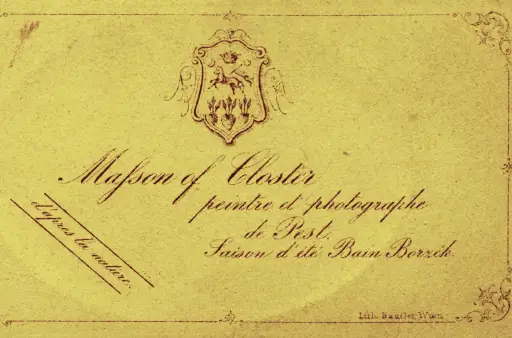 Maſson of Closter
peintre et photographe
de Pest
Saison d'été Bain Borzék.
d'après la nature.
Lith. Wien